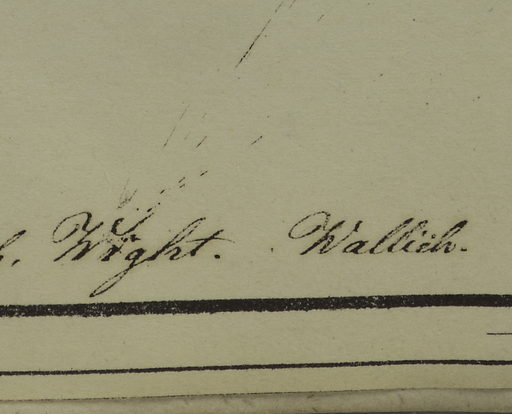 h. Wight. Wallich.